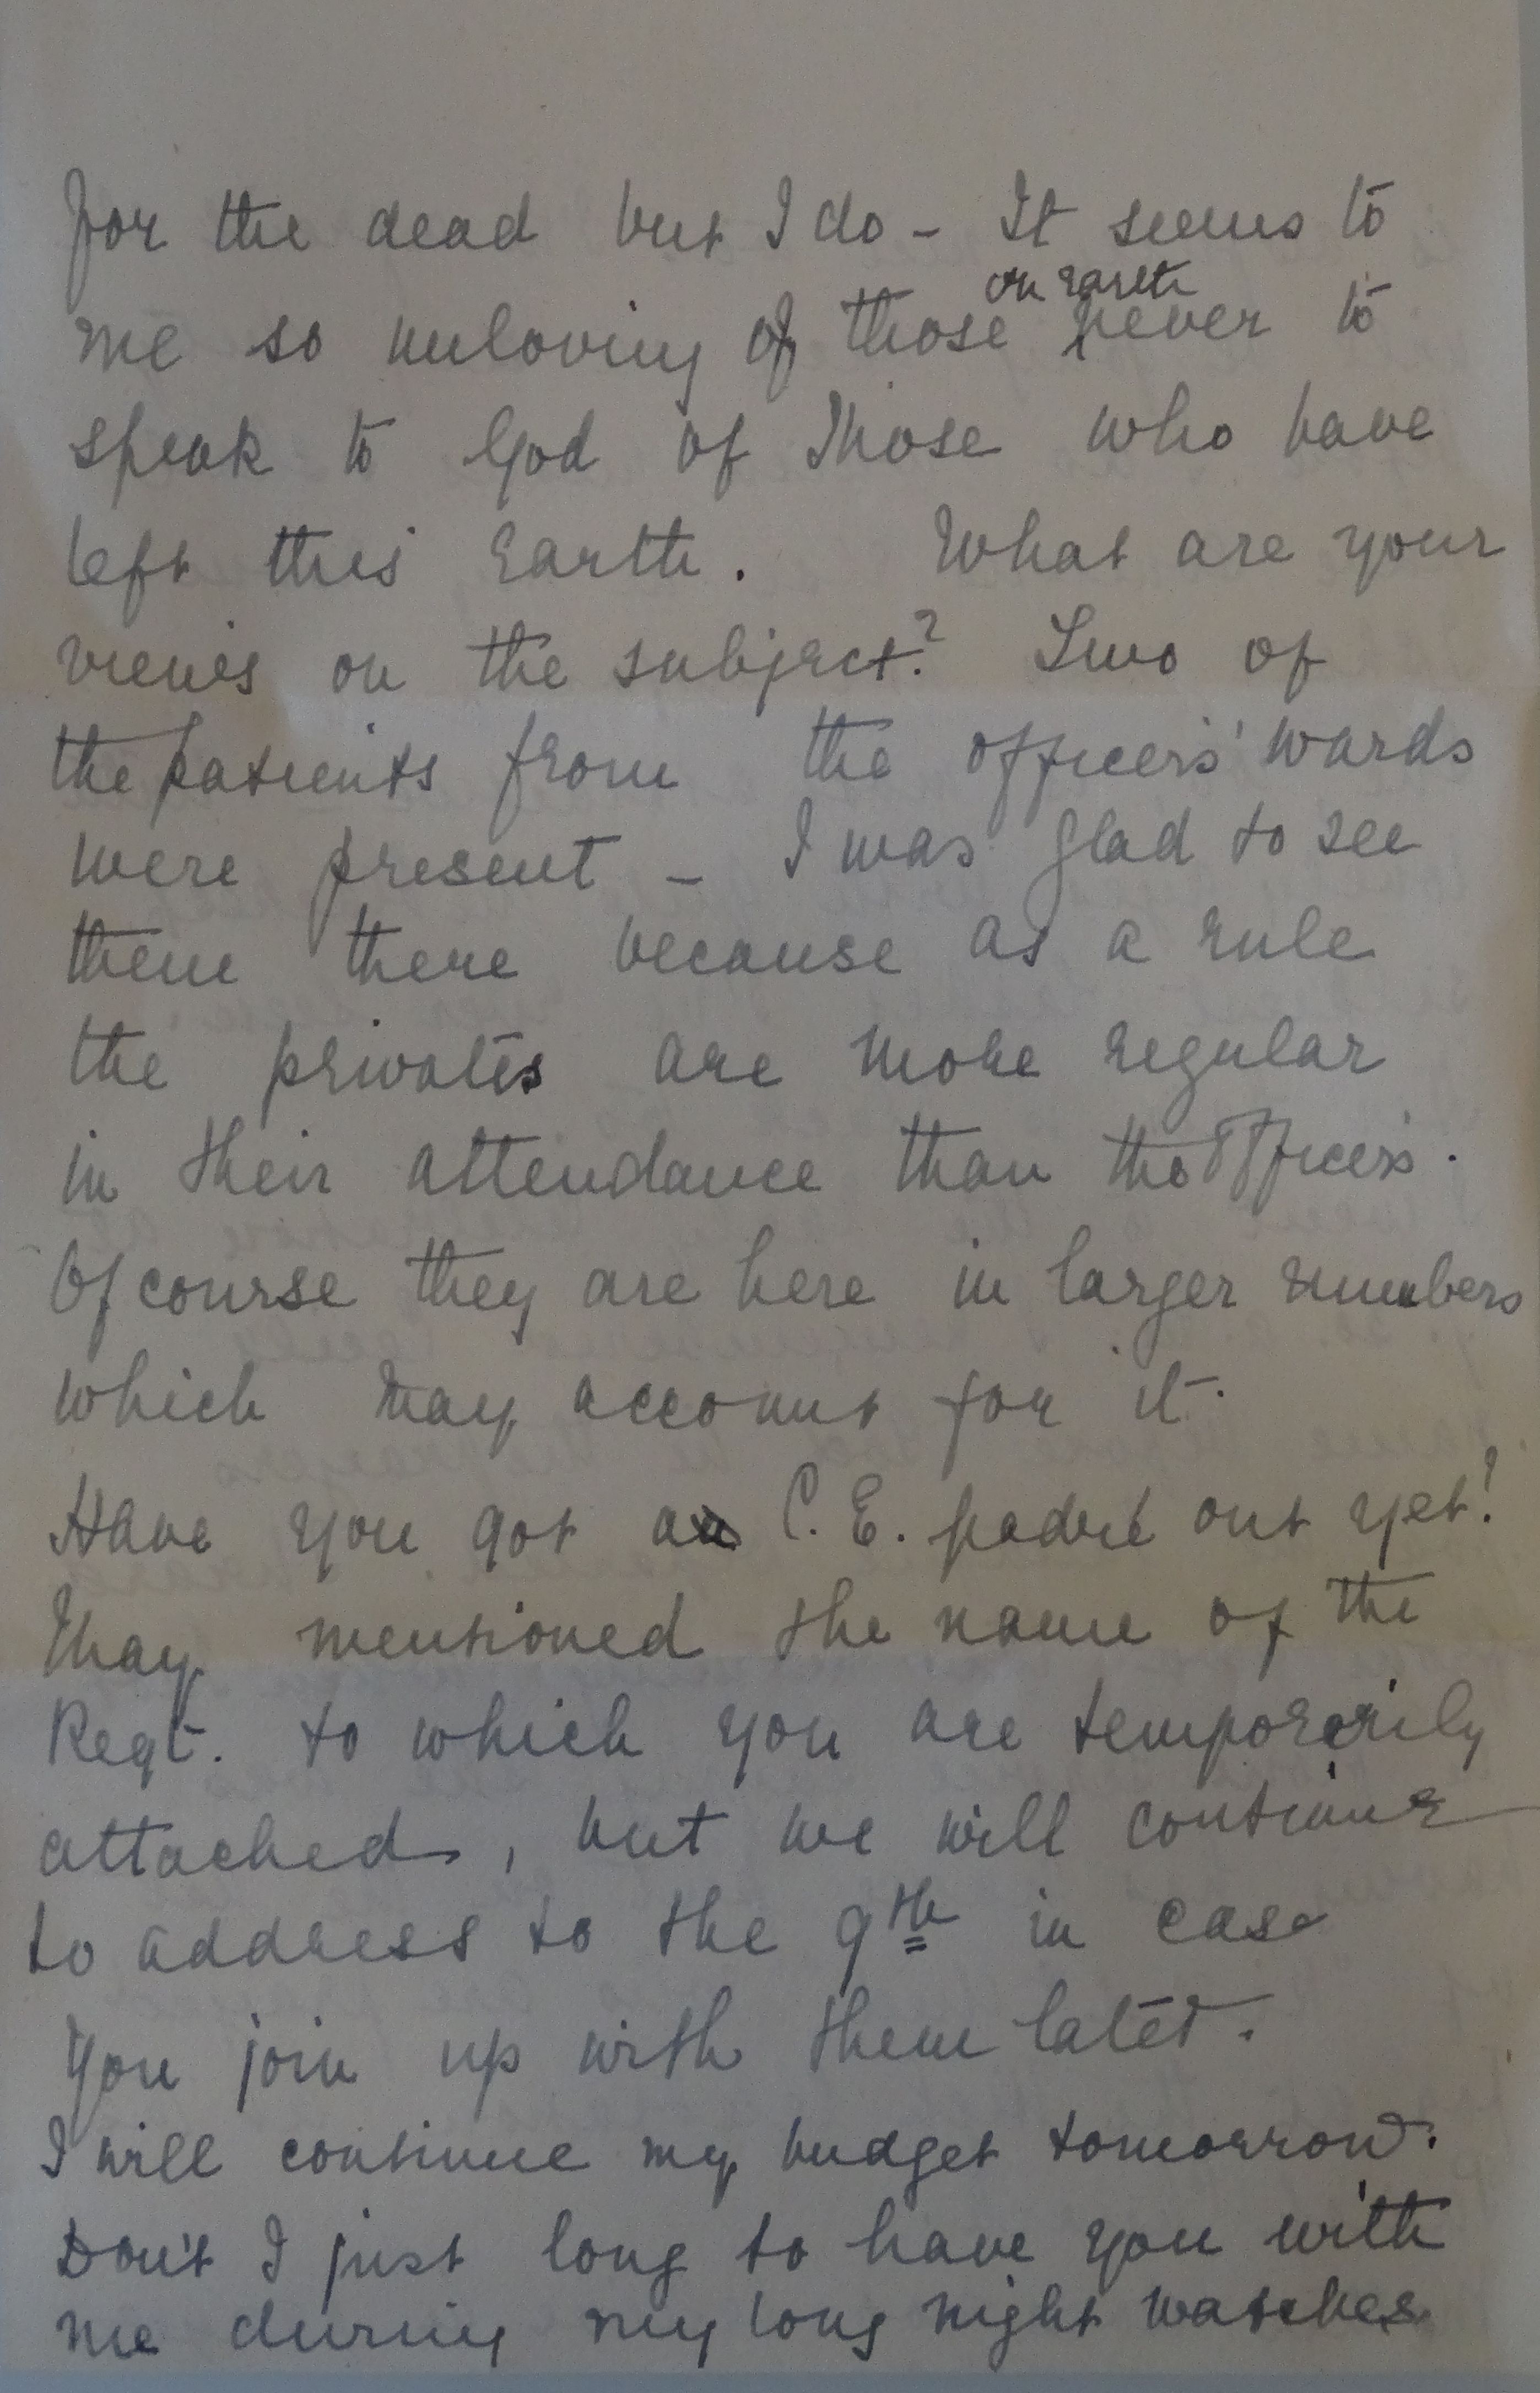 for the dead but I do - It seems to
me so unloving of those on earth never to
speak to God of those who have
left this Earth. What are your
views on the subject? Two of
the patients from the officers' wards
were present - I was glad to see
them there because as a rule
the privates are more regular
in their attendance than the Officers.
Of course they are here in larger numbers
which may account for it.
Have you got a C. E. padre out yet?
May mentioned the name of the
Regt. to which you are temporarily
attached, but we will continue
to address to the 9th in case
you join up with them later.
I will continue my budget tomorrow.
Don't I just long to have you with
me during my long night watches